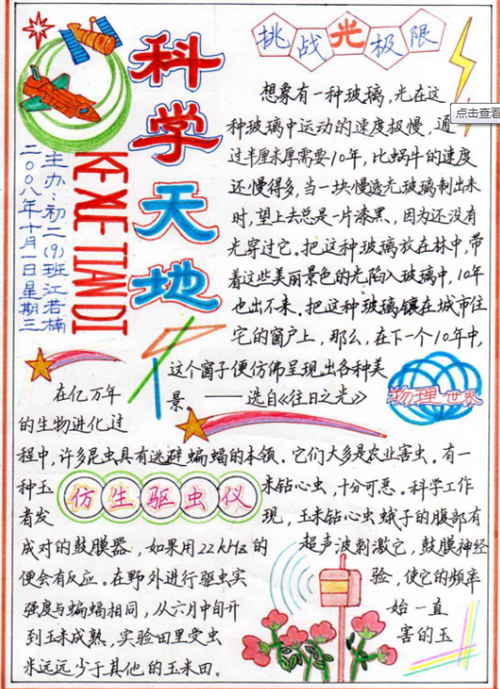 科学天地
KE XUE TIAN DI
主办:初二(9)班江若楠
二〇〇八年十月一日星期三
挑战光极限
想象有一种玻璃,光在这
种玻璃中运动的速度极慢,通
过半厘米厚需要10年,比蜗牛的速度
还慢得多,当一块慢透光玻璃制出来
时,望上去总是一片漆黑,因为还没有
光穿过它。把这种玻璃放在林中,带
着这些美丽景色的光陷入玻璃中,10年
也出不来。把这种玻璃镶在城市住
宅的窗户上,那么,在下一个10年中,
这个窗子便仿佛呈现出各种美
景 ——选自《往日之光》
点击查看
物理世界
仿生驱虫仪
在亿万年
的生物进化过
程中,许多昆虫具有逃避蝙蝠的本领。它们大多是农业害虫,有一
种玉米钻心虫,十分可恶。科学工作
者发现,玉米钻心虫蛾子的腹部有
成对的鼓膜器,如果用22kHz的超声波刺激它,鼓膜神经
便会有反应。在野外进行驱虫实验,使它的频率
强度与蝙蝠相同,从六月中旬开始一直
到玉米成熟,实验田里受虫害的玉
米远远少于其他的玉米田。